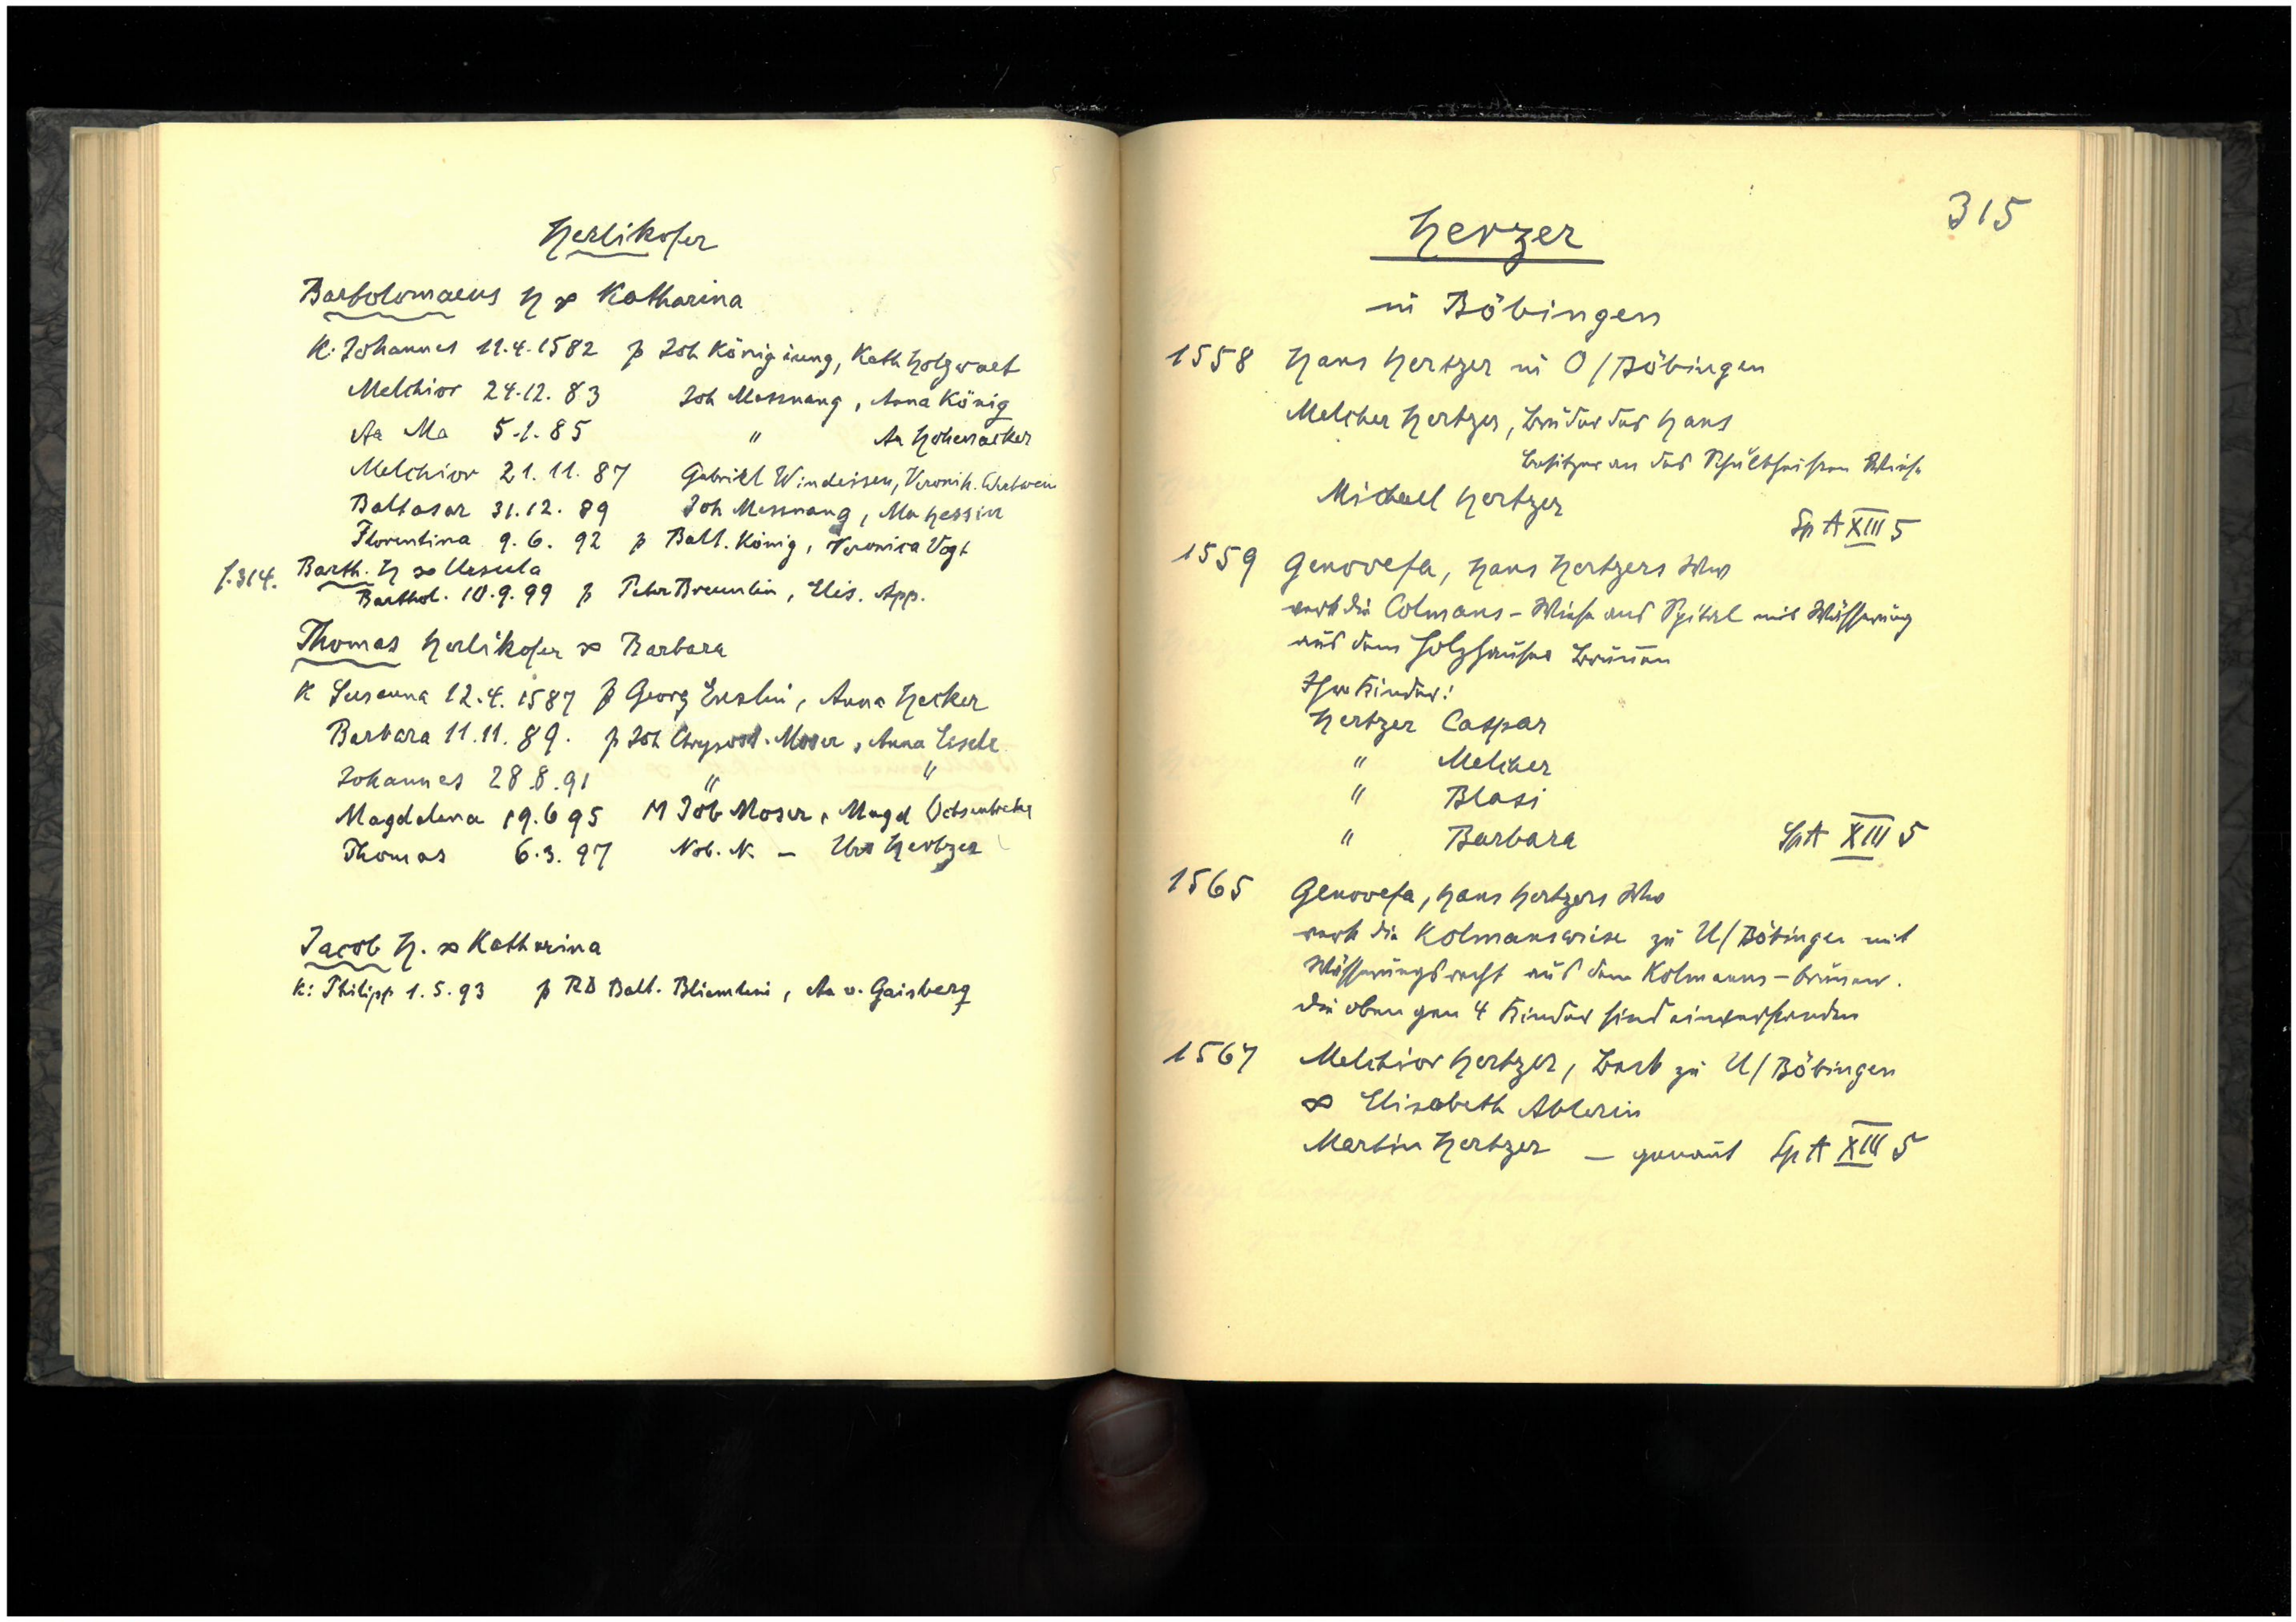 Herlikofer
Bartolomaeus H ∞ Katharina
K: Johannes 11.4.1582 p Joh König iung, Kath Holzwart
Melchior 24.12.83 Joh Messnang, Anna König
Aa Ma 5.1.85 " Aa Hohenacker
Melchior 21.11.87 Gabriel Windeisen, Veronik.
Baltasar 31.12.89 Joh Messnang, Ma Hessin
Florentina 9.6.92 p Balt. König, Veronica Vogt
f. 314. Barth. H ∞ Ursula
Barthol. 10.9.99 p Petr Breunlin, Elis. App.
Thomas Herlikofer ∞ Barbara
K Susanna 12.4.1587 p Georg Enslin, Anna Hecker
Barbara 11.11.89. p Joh Chrysost. Moser, Anna Eisele
Johannes 28.8.91 " "
Magdalena 19.6 95 M Job Moser, Magd
Thomas 6.3.97 Nob. N. — Urs Hertzer
Jacob H. ∞ Katharina
K: Philipp 1.5.93 p RD Balt. Bliemlein, Aa v. Gaisberg
315
Herzer
in Böbingen
1558 Hans Hertzer in O/Böbingen
Melcher Hertzer, Bruder des Hans
Besitzer an des Schultheissen Wiese
Michael Hertzer
Sp A XIII 5
1559 Genovefa, Hans Hertzers Ww
verk die Colmans-Wiese ans Spital mit Wässerung
aus dem Holzhauser Brunnen
Ihre Kinder:
Hertzer Caspar
" Melcher
" Blasi
" Barbara SpA XIII 5
1565 Genovefa, Hans Hertzers Ww
verk die Kolmanswiese zu U/Böbingen mit
Wässerungsrecht aus dem Kolmanns-brunnen.
die obengen 4 Kinder sind einverstanden
1567 Melchior Hertzer, Beck zu U/Böbingen
∞ Elisabeth Ablerin
Martin Hertzer — genannt Sp A XIII 5